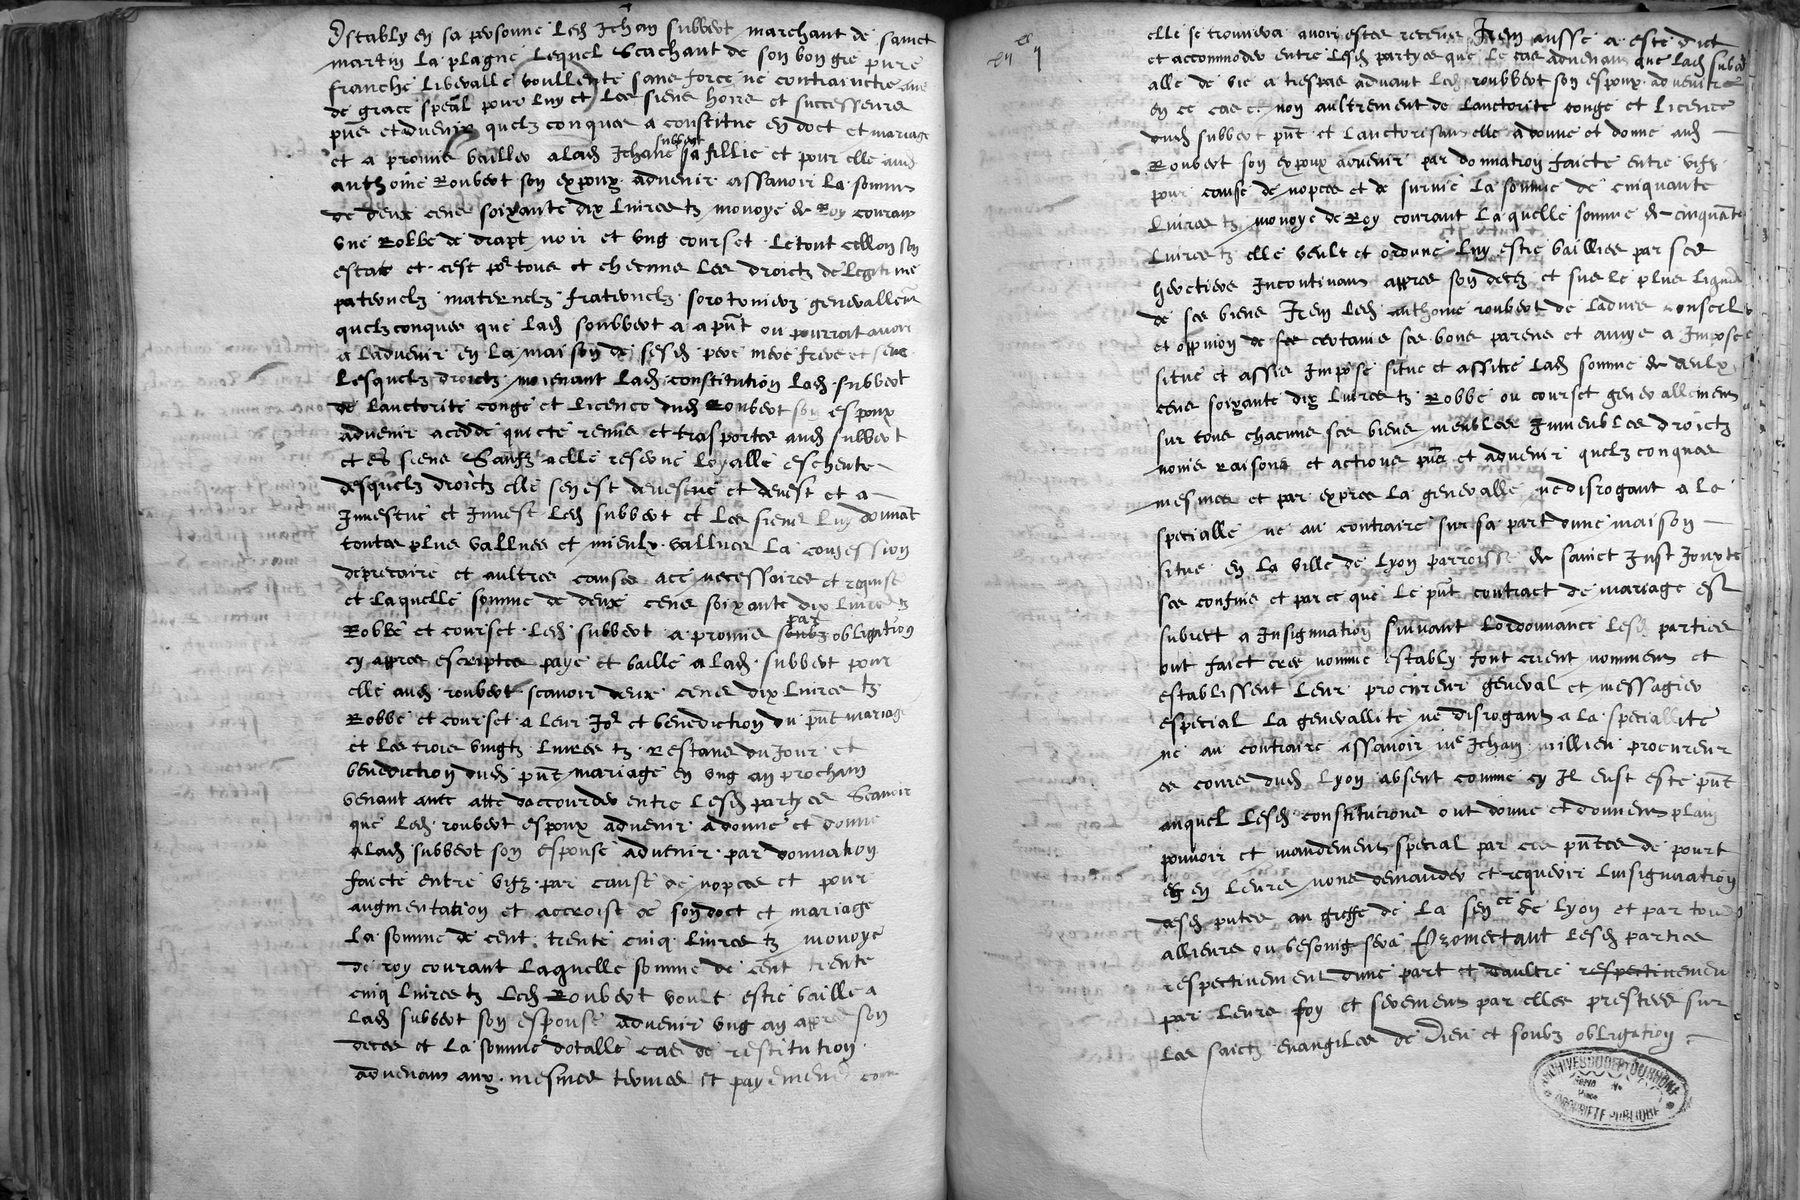 Estably en sa personne led Jehan subbert marchant de sainct
martin la plagne lequel scachant de son bon gre pure
franche liberalle voullente sans force ne contrainte ains
de grace speal pour luy et les siens hoirs et successeurs
pns et advenir quelzconques a constitue en doct et mariage
et a promis bailler a lad Jehane subbert sa fillie et pour elle aud
anthoine Roubert son expoux advenir assavoir la somme
de deux cens soixante dix livres tz monoye de Roy courant
une Robbe de drapt noir et ung courset le tout cellon son
estat et cest por tous et checuns les droictz de legitime
paternelz maternelz fraternelz sororoniers generallem
quelzconques que lad soubbert a a pnt ou pourroit avoir
a ladvenir en la maison de sesd pere mere frere et seur
Lesquelz droictz moienant lad constitution lad subbert
de lauctorite conge et licence dud Roubert son espoux
advenir a cedde quicte remis et trasportes aud subbert
et es siens saufz a elle reserve loyalle escheute
desquelz droictz elle sen est devestue et devest et a
Jnvestue et Jnvest led subbert et les siens luy donnat
toutes plus vallues et mieulx vallues la confession
de precaire et aultres causes a ce necessaires et requises
et laquelle somme de deux cens soixante dix livres tz
Robbe et courset led subbert a promis par soubz obligation
cy apres escriptes paye et baille a lad subbert pour
elle aud roubert scavoir deux cens dix livres tz
Robbe et courset a leur Jor et benediction du pnt mariage
et les trois vingtz livres tz restans du Jour et
benediction dud pnt mariage en ung an prochain
venant avec atte daccourder entre lesd partyes Scavoir
que led roubert espoux advenir a donne et donne
a lad subbert son espouse advenir par donnation
faicte entre vifz par cause de nopces et pour
augmentation et accroist de son doct et mariage
la somme de cent trente cinq livres tz monoye
de roy courant laquelle somme de cent trente
cinq livres tz led Roubert voult estre baille a
lad subbert son espouse advenir ung an apres son
deces et la somme dotalle cas de restitution
advenant aux mesmes termes et payemens com
elle se trouvera avoir estes receue Jtem aussi a este dict
et accommoder entre lesd partyes que le cas advenant que lad subert
alle de vie a trespas advant led roubbert son espoux advenir
en ce cas et non aultrement de lauctorite conge et licence
dud subbert pnt et lauctorisant elle a donne et donne aud
Roubert son expoux advenir par donnation faicte entre vifz
pour cause de nopces et de survie la somme de cinquante
livres tz monoye de Roy courant laquelle somme de cinquante
livres tz elle veult et ordonne luy estre baillies par ses
heretiers Jncontinant appres son deces et sur le plus liquide
de ses biens Jtem led anthoine roubert de ladvis conseil
et oppinion de ses certains ses bons parens et amys a Jmpose
situe et assis Jmpose situe et assitte lad somme de deulx
cens soixante dix livres tz Robbe ou courset generallement
sur tous chacuns ses biens meubles Jmmeubles droictz
noms raisons et actions pns et advenir quelzconques
mesmes et par expres la generalle ne disrogant a la
specialle ne au contraire sur sa part dune maison
situe en la ville de Lyon parroisse de sainct Just Jouxte
ses confins et parce que le pnt contract de mariage est
subiect a Jnsignuation suivant lordonnance lesd parties
ont faict cree nomme estably font crient nommens et
establissent leur procureur general et messagier
especial la generallite ne disrogant a la speciallite
ne au contraire assavoir me Jehan millieu procureur
es cours dud Lyon absent comme cy Jl eust este pnt
auquel lesd constitucions ont donne et donnens plain
pouvoir et mandement special par ces pntes de pourt
et en leurs noms demander et requerir linsignuation
desd pntes au greffe de la senee de Lyon et par tout
allieurs ou besoing sera Promectant lesd parties
respectivement dune part et daultre respectivement
par leurs foy et seremens par elles prestees sur
les saictz evangiles de Dieu et soubz obligation
ARCHIVES DU DEPT DU RHONE
PROPRIETE PUBLIQUE